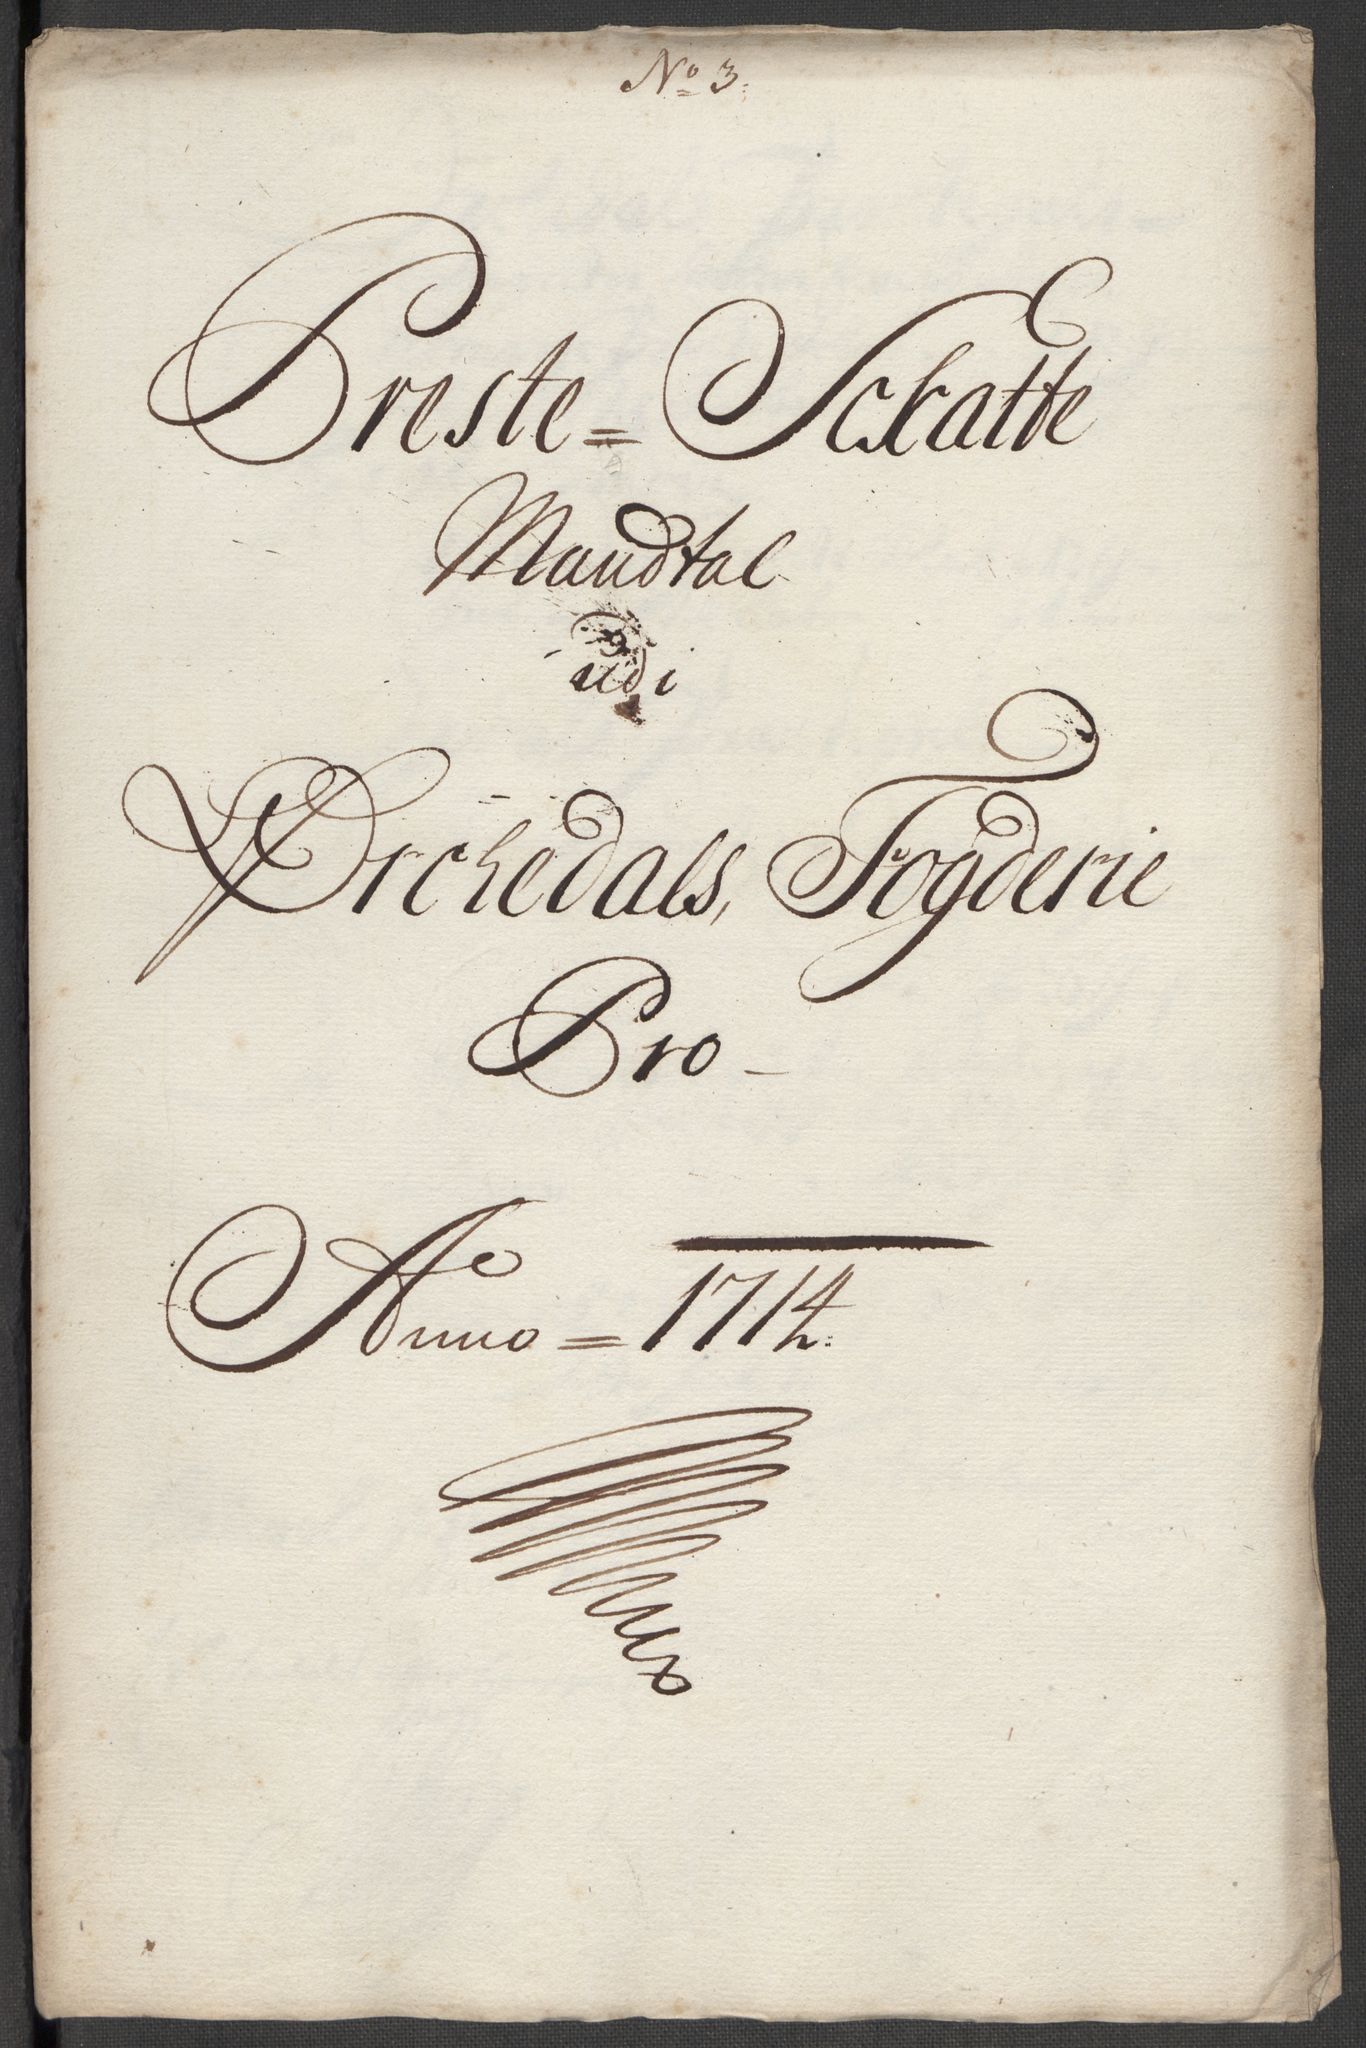 No 3.
Preste= Schatte
Mandtal
udi
Orchedals, Fogderie
Pro-
Anno = 1714.